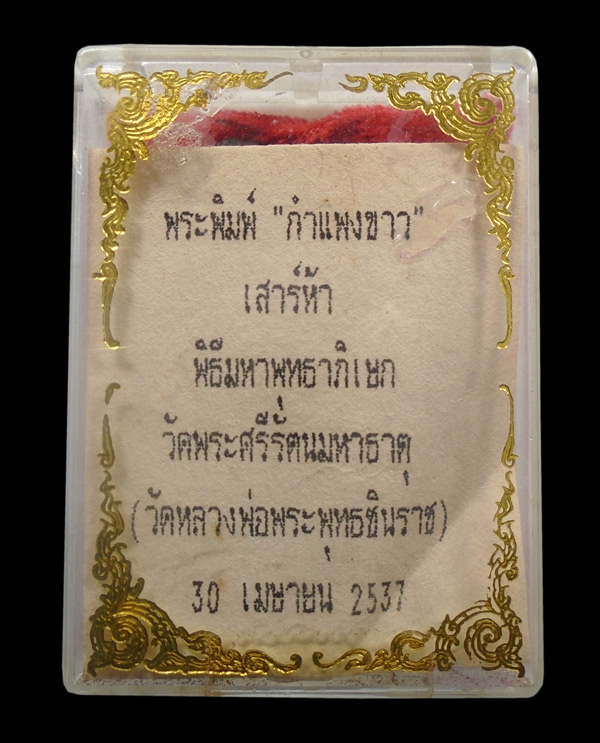 พระพิมพ์ "กำแพงขาว"
เสาร์ห้า
พิธีมหาพุทธาภิเษก
วัดพระศรีรัตนมหาธาตุ
(วัดหลวงพ่อพระพุทธชินราช)
30 เมษายน 2537